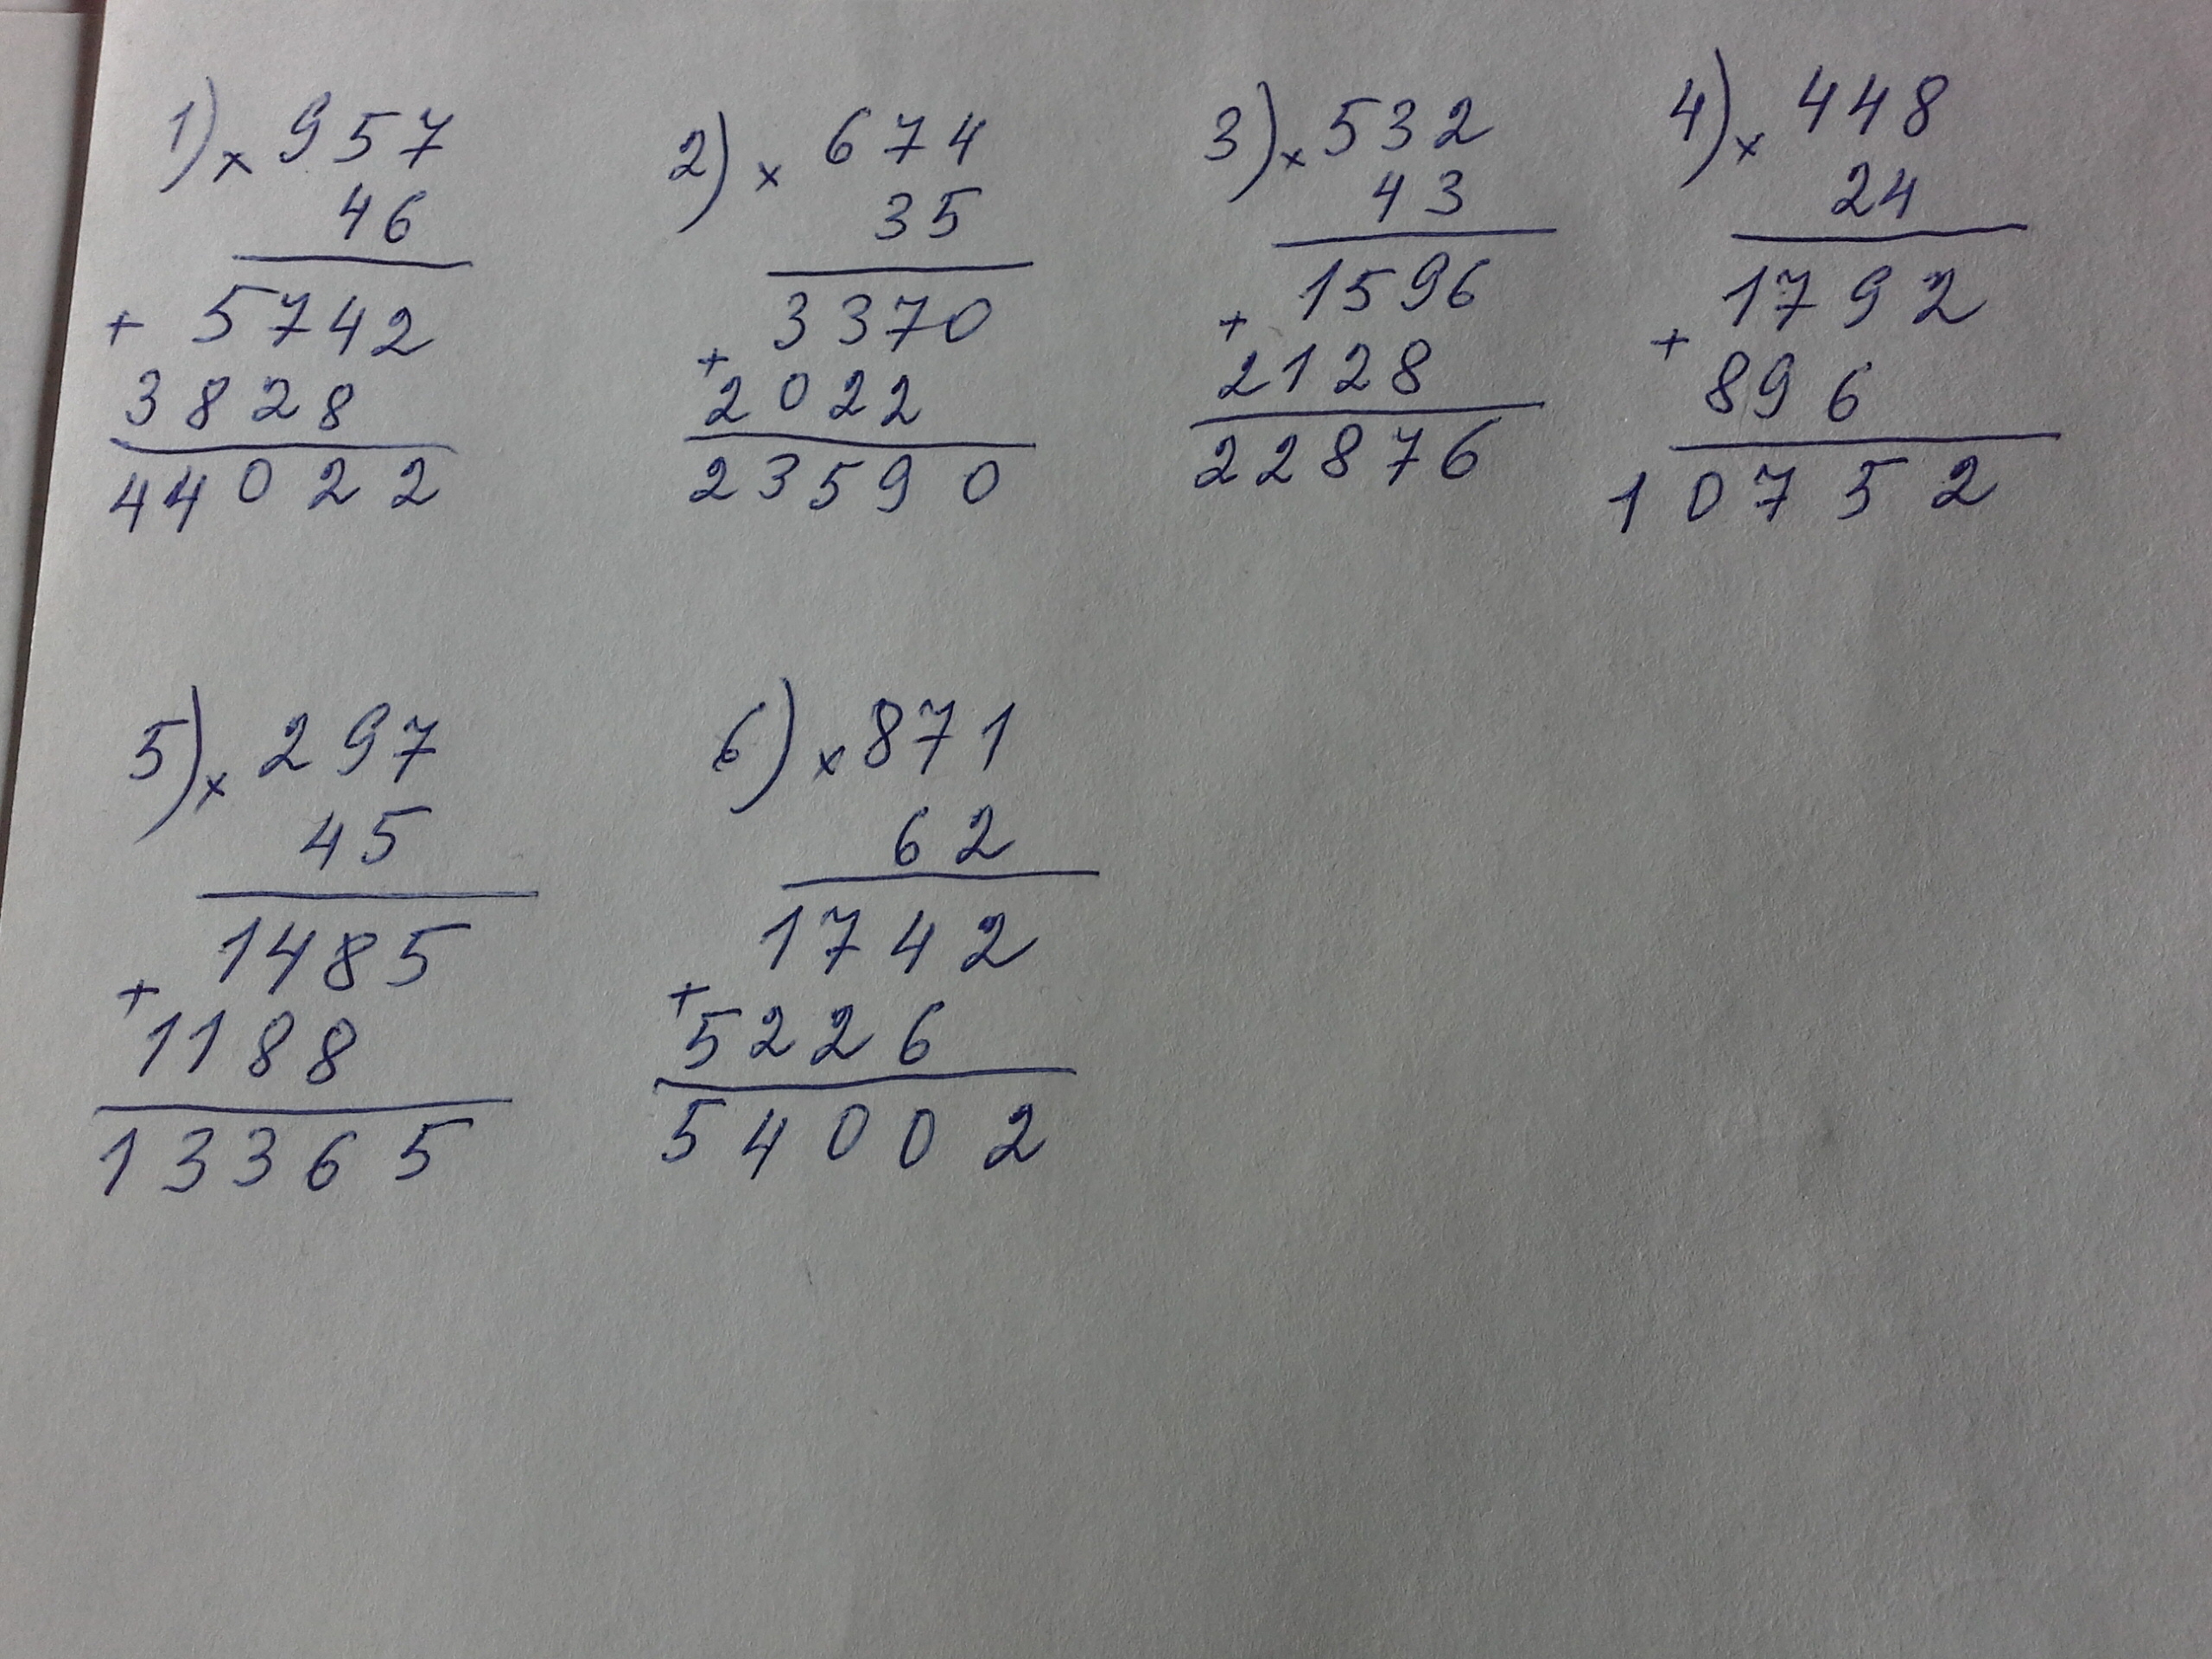 1) × 957
46
+ 5742
3828
44022
2) × 674
35
3370
+
2022
23590
3) × 532
43
1596
+
2128
22876
4) × 448
24
1792
+
896
10752
5) × 297
45
1485
+
1188
13365
6) × 871
62
1742
+
5226
54002